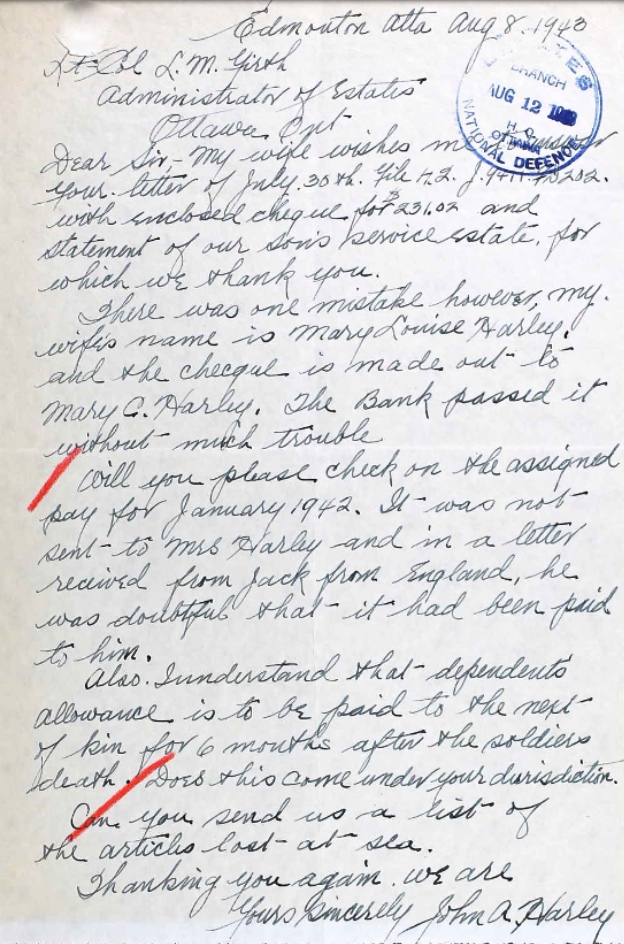 Edmonton Alta Aug 8, 1943
Lt=Col L. M. Firth
Administrator of Estates
Ottawa Ont
ESTATES
BRANCH
AUG 12
H. Q.
OTTAWA
NATIONAL DEFENCE
Dear Sir,- My wife wishes me to answer
your letter of July. 30th. File H.2.
with enclosed cheque for $231.02 and
statement of our son's service estate, for
which we thank you.
There was one mistake however, my.
wife's name is Mary Louise Harley,
and the checque is made out to
Mary C. Harley. The Bank passed it
without much trouble
Will you please check on the assigned
pay for January 1942. It was not
sent to Mrs Harley and in a letter
received from Jack from England, he
was doubtful that it had been paid
to him.
Also. I understand that dependents
allowance is to be paid to the next
of kin for 6 months after the soldiers
death. Does this come under your durisdiction.
Can you send us a list of
the articles lost at sea.
Thanking you again. we are
Yours Sincerely John A. Harley